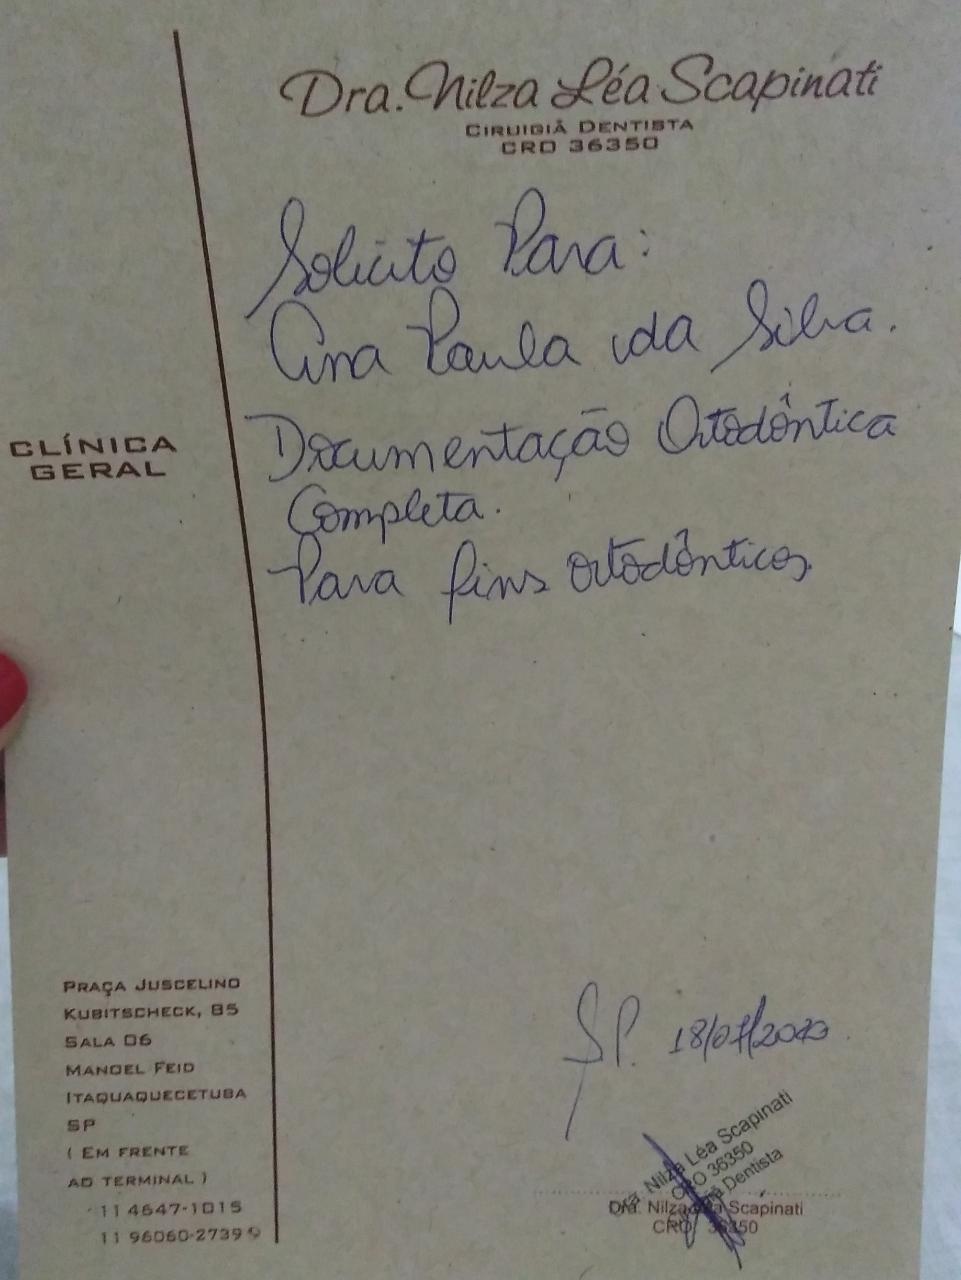 Dra. Nilza Léa Scapinati
CIRUIGIÃ DENTISTA
CRO 36350
Solicito Para:
Ana Paula da Silva.
Documentação Ortodôntica
Completa.
Para fins ortodônticos
CLÍNICA
GERAL
PRAÇA JUSCELINO
KUBITSCHECK, 85
SALA 06
MANOEL FEIO
ITAQUAQUECETUBA
SP
( EM FRENTE
AO TERMINAL )
11 4647-1015
11 96060-2739
SP. 18/07/2020
Dra. Nilza Léa Scapinati
CRO 36350
Cirurgiã Dentista
Dra. Nilza Léa Scapinati
CRO 36350